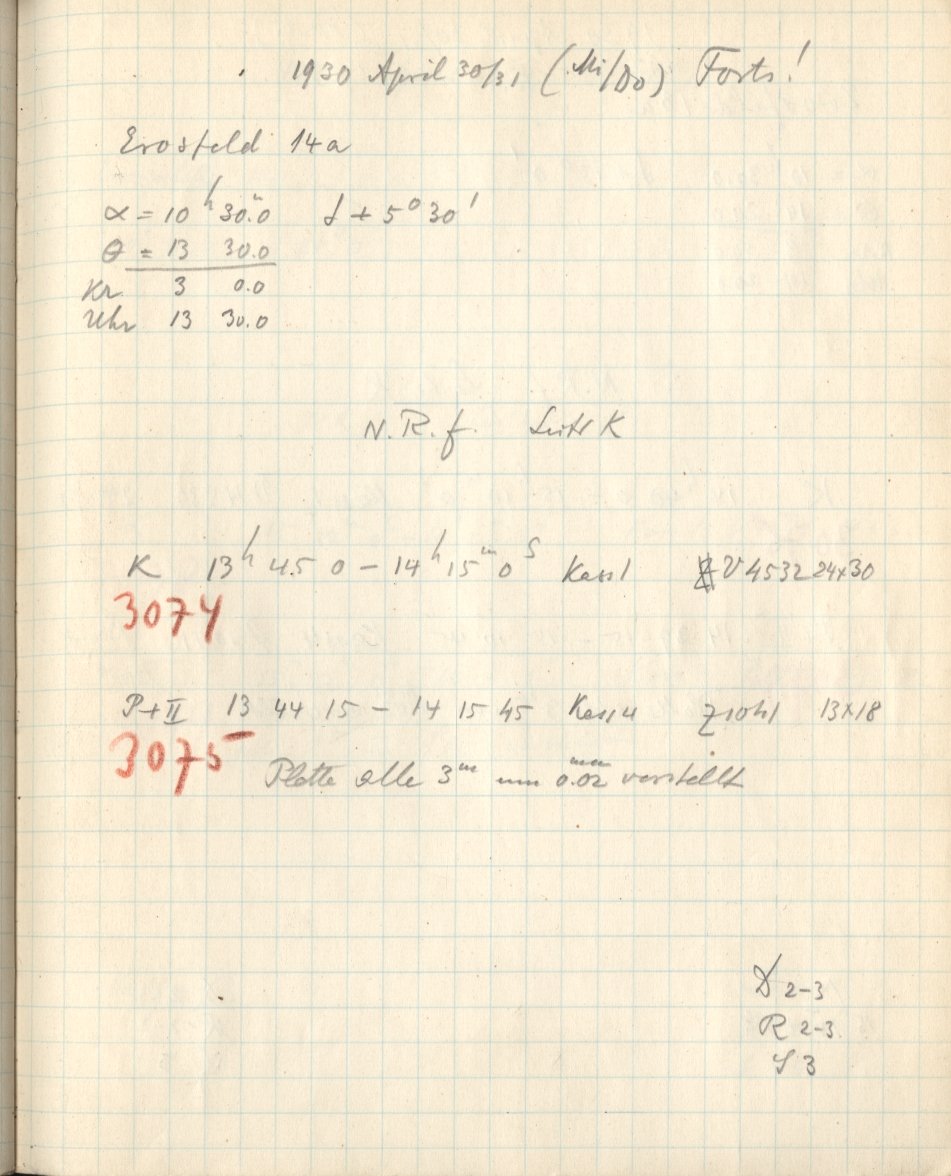 1930 April 30/31 (Mi/Do) Forts!
Erosfeld 14a
α = 10ʰ 30ᵐ.0 δ + 5° 30'
θ = 13 30.0
Kr 3 0.0
Uhr 13 30.0
N.R.f. Leitr K
K 13ʰ 45 0 – 14ʰ 15ᵐ 0ˢ Kass 1 V 4532 24x30
3074
P+II 13 44 15 – 14 15 45 Kass 4 13x18
3075
Platte alle 3ᵐ um 0.02ᵐᵐ verstellt
2-3
R 2-3
S 3